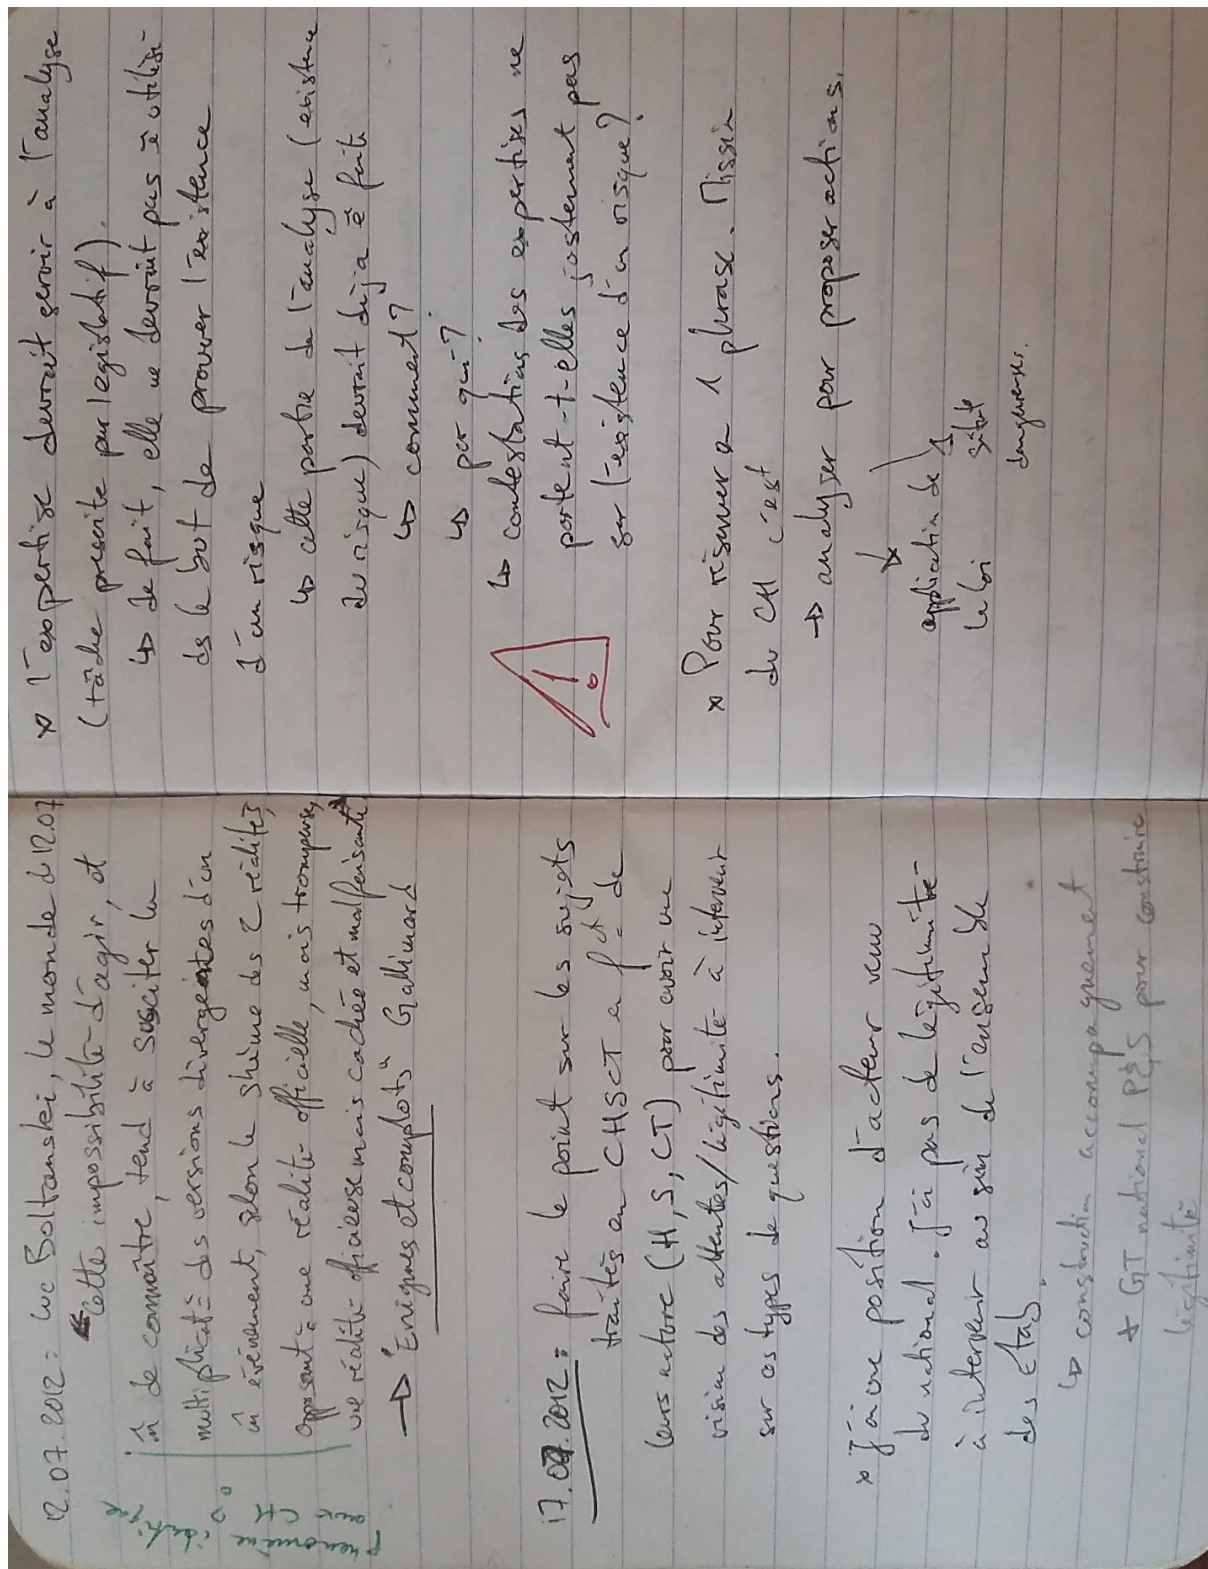 12.07.2012 : Luc Boltanski, le monde du 12.07
"Cette impossibilité d'agir, et
in de connaître, tend à susciter la
multiplicat° des versions divergentes d'un
m̂ événement, selon le shème des 2 réalités,
opposant à une réalité officielle, mais trompeuse,
une réalité officieuse mais cachée et malfaisante
→ "Enigmes et complots" Gallimard
phénomène
identique
aux CH
17.07.2012 : faire le point sur les sujets
traités en CHSCT en fct° de
leurs nature (H, S, CT) pour avoir une
vision des attentes/légitimité à intervenir
sur ces types de questions.
x J'ai une position d'acteur venu
du national. J'ai pas de légitimité
à intervenir au sein de l'ensemble
des Etab.
↳ construction accompagnement
+ GT national P&S pour construire
légitimité
x l'expertise devrait servir à l'analyse
(tâche prescrite par législatif).
↳ de fait, elle ne devrait pas ê utilisé
ds le but de prouver l'existence
d'un risque
↳ cette partie de l'analyse (existence
du risque) devrait déjà ê faite
↳ comment ?
↳ par qui ?
↳ contestations des expertises ne
portent-t-elles justement pas
sur l'existence d'un risque ?
!
x Pour résumer en 1 phrase. Mission
du CH c'est
→ analyser pour proposer actions.
application de
la loi
dangereuses.